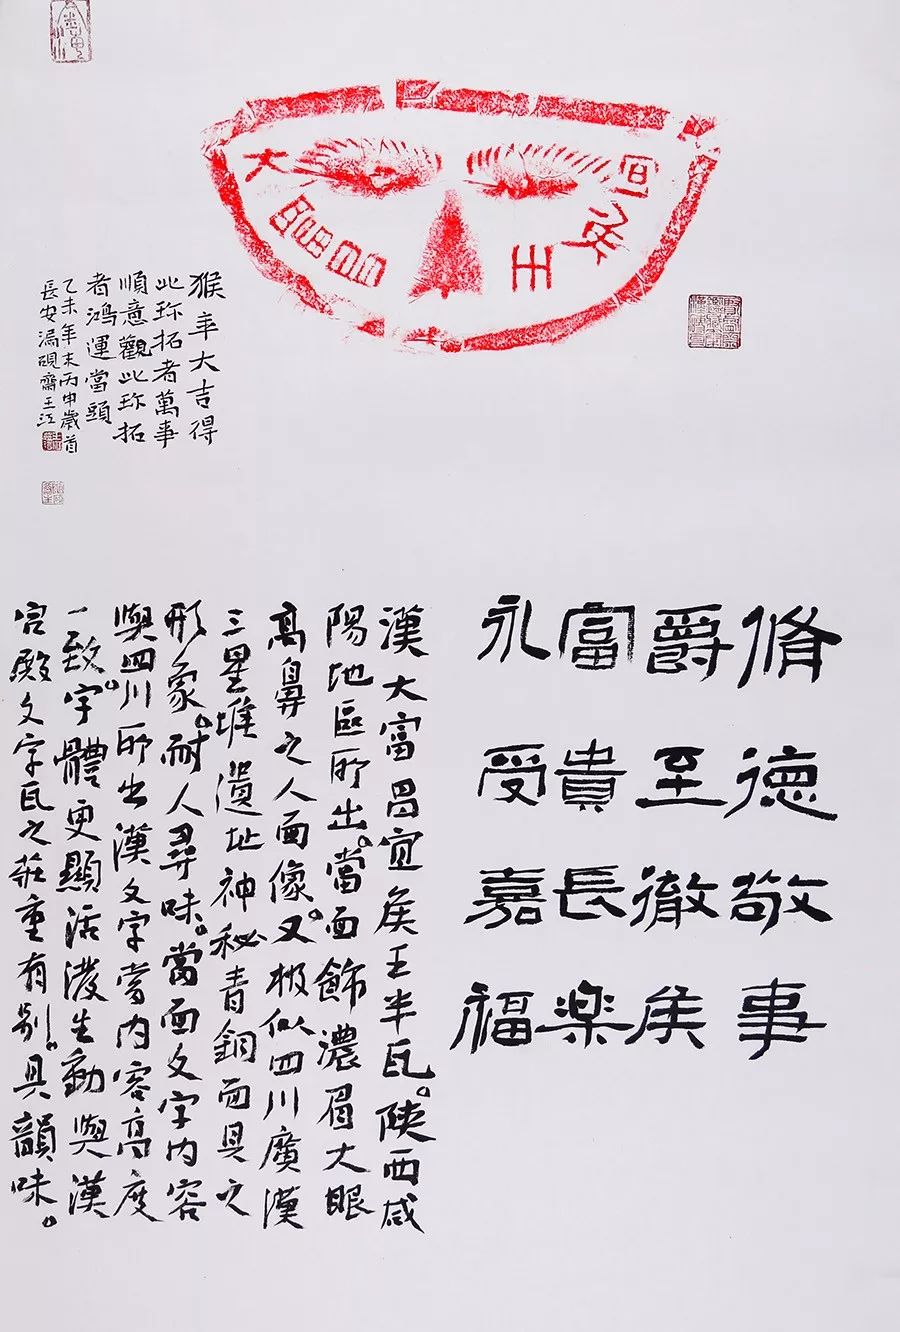 大富昌
宜侯王
猴年大吉得
此珍拓者萬事
順意觀此珍拓
者鴻運當頭
乙未年末丙申歲首
長安硯齋王江
脩德敬事
爵至徹矦
富貴長楽
永受嘉福
漢大富昌宜矦王半瓦。陝西咸
陽地區所出。當面飾濃眉大眼
高鼻之人面像。又极似四川廣漢
三星堆遺址神秘青銅面具之
形象。耐人尋味。當面文字内容
與四川所出漢文字當内容高度
一致。字體更顯活潑生動與漢
宫殿文字瓦之莊重有别。具韻味。